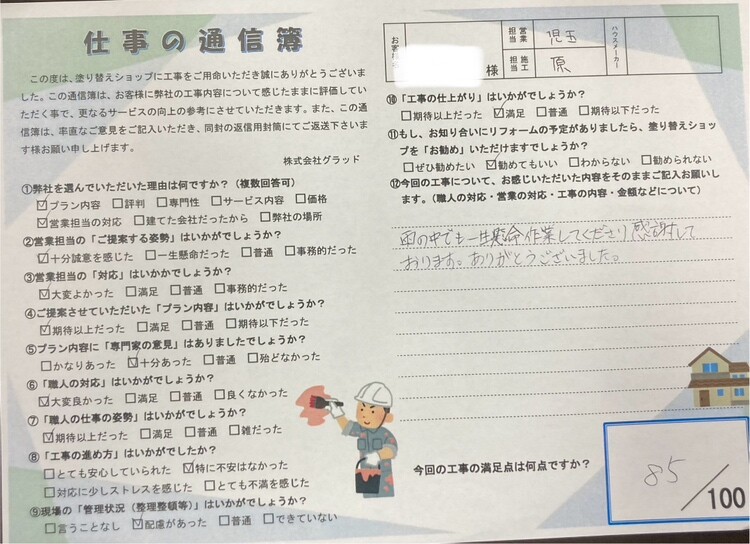 仕事の通信簿
この度は、塗り替えショップに工事をご用命いただき誠にありがとうございま
した。この通信簿は、お客様に弊社の工事内容について感じたままに評価してい
ただく事で、更なるサービスの向上の参考にさせていただきます。また、この通
信簿は、率直なご意見をご記入いただき、同封の返信用封筒にてご返送下さいま
す様お願い申し上げます。
株式会社グラッド
①弊社を選んでいただいた理由は何ですか？（複数回答可）
☑プラン内容 □評判 □専門性 □サービス内容 □価格
☑営業担当の対応 □建てた会社だったから □弊社の場所
②営業担当の「ご提案する姿勢」はいかがでしょうか？
☑十分誠意を感じた □一生懸命だった □普通 □事務的だった
③営業担当の「対応」はいかかでしょうか？
☑大変よかった □満足 □普通 □事務的だった
④ご提案させていただいた「プラン内容」はいかがでしょうか？
☑期待以上だった □満足 □普通 □期待以下だった
⑤プラン内容に「専門家の意見」はありましたでしょうか？
□かなりあった ☑十分あった □普通 □殆どなかった
⑥「職人の対応」はいかがでしょうか？
☑大変良かった □満足 □普通 □良くなかった
⑦「職人の仕事の姿勢」はいかがでしょうか？
☑期待以上だった □満足 □普通 □雑だった
⑧「工事の進め方」はいかがでしたか？
□とても安心していられた ☑特に不安はなかった
□対応に少しストレスを感じた □とても不満を感じた
⑨現場の「管理状況（整理整頓等）」はいかがでしょうか？
□言うことなし ☑配慮があった □普通 □できていない
お客様
様
営業担当
児玉
施工担当
原
ハウスメーカー
⑩「工事の仕上がり」はいかがでしょうか？
□期待以上だった ☑満足 □普通 □期待以下だった
⑪もし、お知り合いにリフォームの予定がありましたら、塗り替えショッ
プを「お勧め」いただけますでしょうか？
□ぜひ勧めたい ☑勧めてもいい □わからない □勧められない
⑫今回の工事について、お感じいただいた内容をそのままご記入お願いし
ます。（職人の対応・営業の対応・工事の内容・金額などについて）
雨の中でも一生懸命作業してくださり感謝して
おります。ありがとうございました。
今回の工事の満足点は何点ですか？
85/100